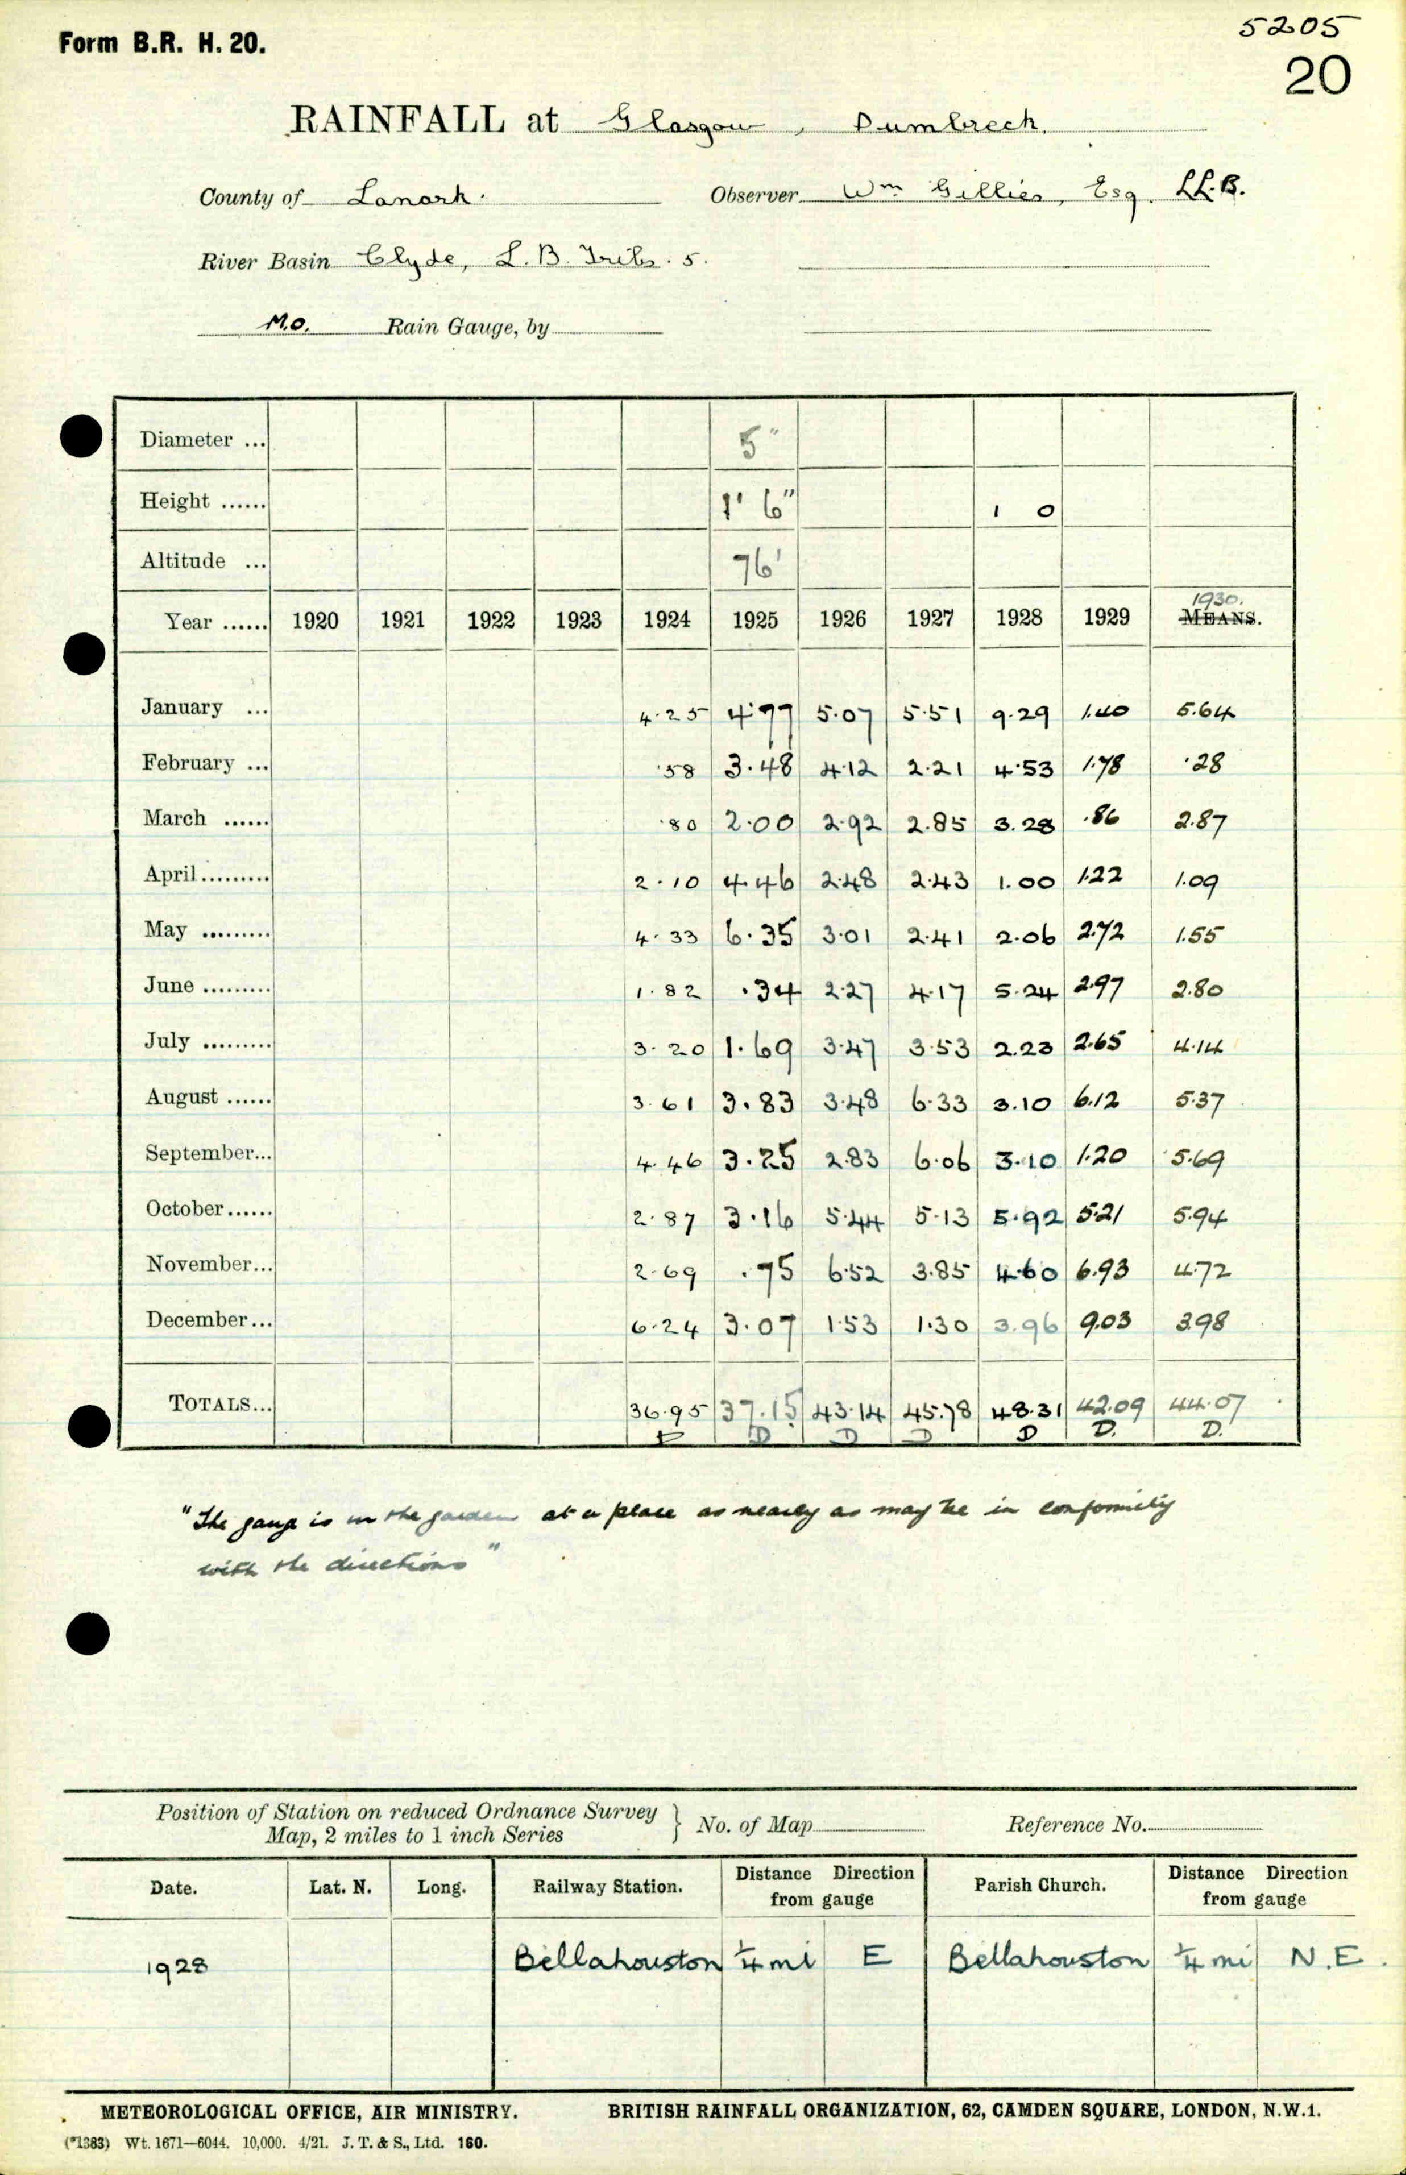 5205
Form B.R. H. 20.
20
RAINFALL at Glasgow, Dumbreck.
County of Lanark. Observer Wm Gillies, Esq. LL.B.
River Basin Clyde, L.B. Tribs. 5.
M.O. Rain Gauge, by
Diameter ... 5"
Height ...... 1' 6" 1 0
Altitude ... 76'
1930.
Year ...... 1920 1921 1922 1923 1924 1925 1926 1927 1928 1929 MEANS.
January ... 4.25 4.77 5.07 5.51 9.29 1.40 5.64
February ... .58 3.48 4.12 2.21 4.53 1.78 .28
March ...... .80 2.00 2.92 2.85 3.28 .86 2.87
April ......... 2.10 4.46 2.48 2.43 1.00 1.22 1.09
May ......... 4.33 6.35 3.01 2.41 2.06 2.72 1.55
June ......... 1.82 .34 2.27 4.17 5.24 2.97 2.80
July ......... 3.20 1.69 3.47 3.53 2.23 2.65 4.14
August ...... 3.61 3.83 3.48 6.33 3.10 6.12 5.37
September... 4.46 3.25 2.83 6.06 3.10 1.20 5.69
October ...... 2.87 3.16 5.44 5.13 5.92 5.21 5.94
November... 2.69 .75 6.52 3.85 4.60 6.93 4.72
December... 6.24 3.07 1.53 1.30 3.96 9.03 3.98
TOTALS... 36.95 37.15 43.14 45.78 48.31 42.09 44.07
D D D D D D. D.
"The gauge is in the garden at a place as nearly as may be in conformity
with the directions"
Position of Station on reduced Ordnance Survey
Map, 2 miles to 1 inch Series } No. of Map Reference No.
Date. Lat. N. Long. Railway Station. Distance Direction from gauge Parish Church. Distance Direction from gauge
1928 Bellahouston 1/4 mi E Bellahouston 1/4 mi N.E.
METEOROLOGICAL OFFICE, AIR MINISTRY. BRITISH RAINFALL ORGANIZATION, 62, CAMDEN SQUARE, LONDON, N.W.1.
(*1383) Wt. 1671—6044. 10,000. 4/21. J. T. & S., Ltd. 160.